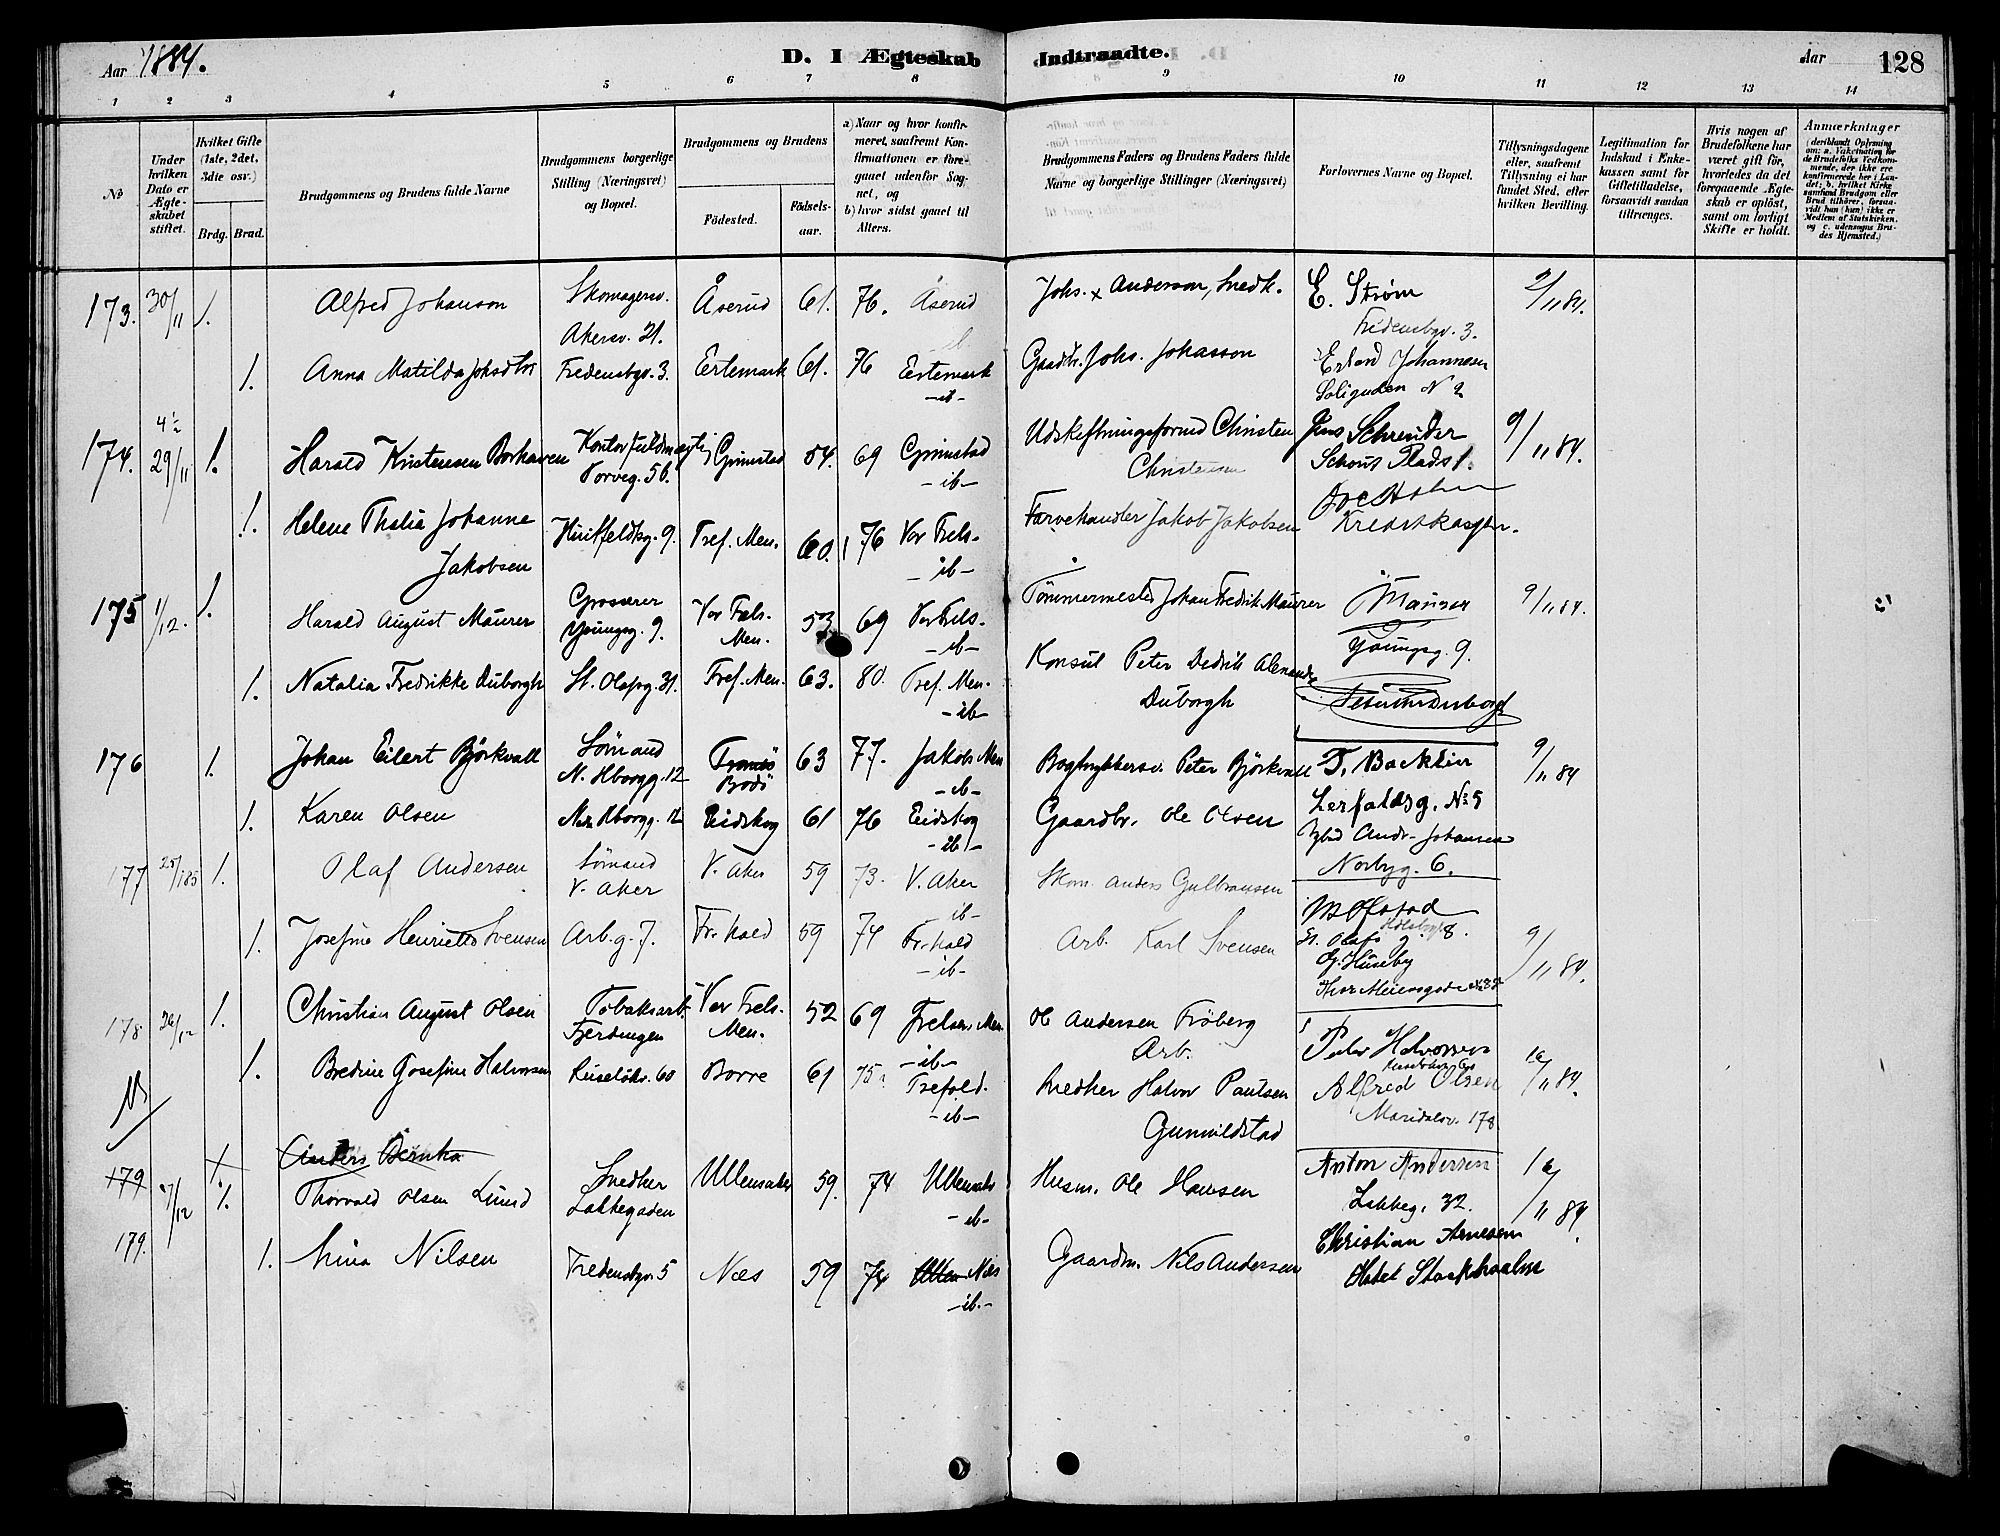 Aar 1884.
D. I Ægteskab Indtraadte.
Aar 128
1 2 3 4 5 6 7 8 9 10 11 12 13 14
No
Under hvilken Dato er Ægteskabet stiftet.
Hvilket Gifte (1ste, 2det, 3die osv.)
Brdg. Brud.
Brudgommens og Brudens fulde Navne
Brudgommens borgerlige Stilling (Næringsvei) og Bopæl.
Brudgommens og Brudens
Födested.
Födsels-aar.
a) Naar og hvor konfirmeret, saafremt Konfirmationen er foregaaet udenfor Sognet, og
b) hvor sidst gaaet til Alters.
Brudgommens Faders og Brudens Faders fulde Navne og borgerlige Stillinger (Næringsvei)
Forlovernes Navne og Bopæl.
Tillysningsdagene eller, saafremt Tillysning ei har fundet Sted, efter hvilken Bevilling.
Legitimation for Indskud i Enkekassen samt for Giftetilladelse, forsaavidt saadan tiltrænges.
Hvis nogen af Brudefolkene har været gift för, hvorledes da det foregaaende Ægteskab er oplöst, samt om lovligt Skifte er holdt.
Anmærkninger
(deriblandt Oplysning om: a. Vakcination for de Brudefolks Vedkommende, der ikke ere konfirmerede her i Landet; b. hvilket Kirkesamfund Brudgom eller Brud tilhörer, forsaavidt han (hun) ikke er Medlem af Statskirken, og c. udensogns Brudes Hjemsted.)
173. 30/11 1. Alfred Johanson Skomagersv. Akersv. 21. Åserud 61. 76. Åserud Johs. x Anderson, Snedk. E. Strøm Fredensbgv. 3. 2/11 84.
1. Anna Matilda Johsdtr Fredensbgv. 3. Ertemark 61. 76 Ertemark -ib- Gaardbr. Johs. Johasson Erland Johannesen N 2
174. 4 1/2 29/11 1. Harald Kristensen Kontorfuldmægtig 56. Grimstad 54. 69 Grimstad -ib- Udskiftningsformd Christen Christensen Jens Schreuder Schous Plads 1. 9/11 84.
1. Helene Thalia Johanne Jakobsen Huitfeldtsg. 9. Tref. Men. 60. 76 Vor Frels. -ib- Farvehandler Jakob Jakobsen
175 1/12. 1. Harald August Maurer Grosserer Youngsg. 9. Vor Frels. Men. 53 69 Vor Frels. -ib- Tømmermester Johan Fredrik Maurer Maurer Youngsg. 9. 9/11 84.
1. Natalia Fredrikke Duborgh St. Olafsg. 31. Tref. Men. 63. 80. Tref. Men. -ib- Konsul Peter Dedrik Alexander Duborgh
176 1. Johan Eilert Björkvall Sömand N. Hborgg. 12 Bodö 63 77. Jakobs Men -ib- Bogtrykkersv. Peter Björkvall T. Backlin 9/11 84
1. Karen Olsen Hborgg. 12 Eidskog 61 76 Eidskog -ib- Gaardbr. Ole Olsen Lerfaldsg. No 5 Andr. Johansen Norbyg. 6.
177 25/1 85 1. Olaf Andersen Sömand V. Aker V. Aker 59 73. V. Aker ib- Skom. Anders Gulbransen
1. Josefine Henriette Svensen Arb. g. 7. Fr. hald 59 74 Fr. hald -ib- Arb. Karl Svensen St. Olafs g. 8. G. Huseby 9/11 84.
178 26/12 1. Christian August Olsen Tobaksarb. Fjerdingen Vor Frels. Men. 52 69 Frelsers Men. -ib- Ol Andersen Fröberg Arb. Peder Halvorsen 16/11 84.
1. Bredine Josefine Halvorsen Ruselökv. 60 Borre 61 75 Trefold. -ib- Snedker Halvor Paulsen Gunnildstad Alfred Olsen Maridalsv. 178
179 7/12 1. Anders
Thorvald Olsen Lund Snedker Lakkegaden Ullensaker 59. 74 Ullensaker -ib- Husm. Ole Hansen Anton Andersen Lakkeg. 32. 16/11 84.
179. 1. Mina Nilsen Fredensbgv. 5 Næs 59 74 Ullen Næs -ib.- Gaardm. Nils Andersen Christian Arnesen Hotel Stockholm